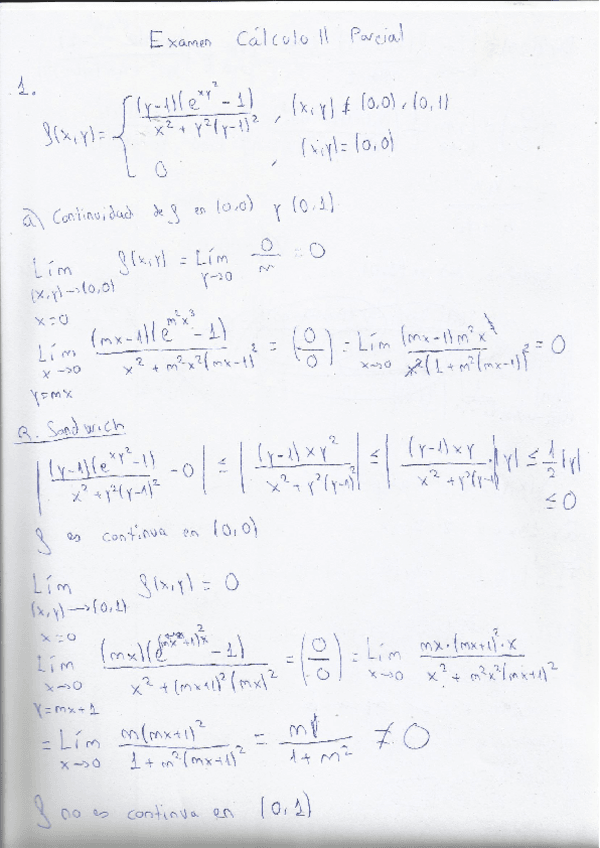 Examen Cálculo II Parcial
1.
f(x,y) = { (y-1)(e^{xy^2} - 1) / (x^2 + y^2(y-1)^2) , (x,y) ≠ (0,0), (0,1)
0 , (x,y) = (0,0)
a) Continuidad de f en (0,0) y (0,1)
Lím_{(x,y)→(0,0), x=0} f(x,y) = Lím_{y→0} 0/~ = 0
Lím_{x→0, y=mx} (mx-1)(e^{m^2x^3} - 1) / (x^2 + m^2x^2(mx-1)^2) = (0/0) = Lím_{x→0} (mx-1)m^2x^3 / (x^2(1+m^2(mx-1)^2)) = 0
R. Sandwich
| (y-1)(e^{xy^2}-1) / (x^2+y^2(y-1)^2) - 0 | ≤ | (y-1)xy^2 / (x^2+y^2(y-1)^2) | ≤ | (y-1)xy / (x^2+y^2(y-1)^2) |·|y| ≤ 1/2 |y|
≤ 0
f es continua en (0,0)
Lím_{(x,y)→(0,1), x=0} f(x,y) = 0
Lím_{x→0, y=mx+1} (mx)(e^{(mx+1)^2x} - 1) / (x^2 + (mx+1)^2(mx)^2) = (0/0) = Lím_{x→0} mx·(mx+1)^2·x / (x^2 + m^2x^2(mx+1)^2)
= Lím_{x→0} m(mx+1)^2 / (1+m^2(mx+1)^2) = m / (1+m^2) ≠ 0
f no es continua en (0,1)